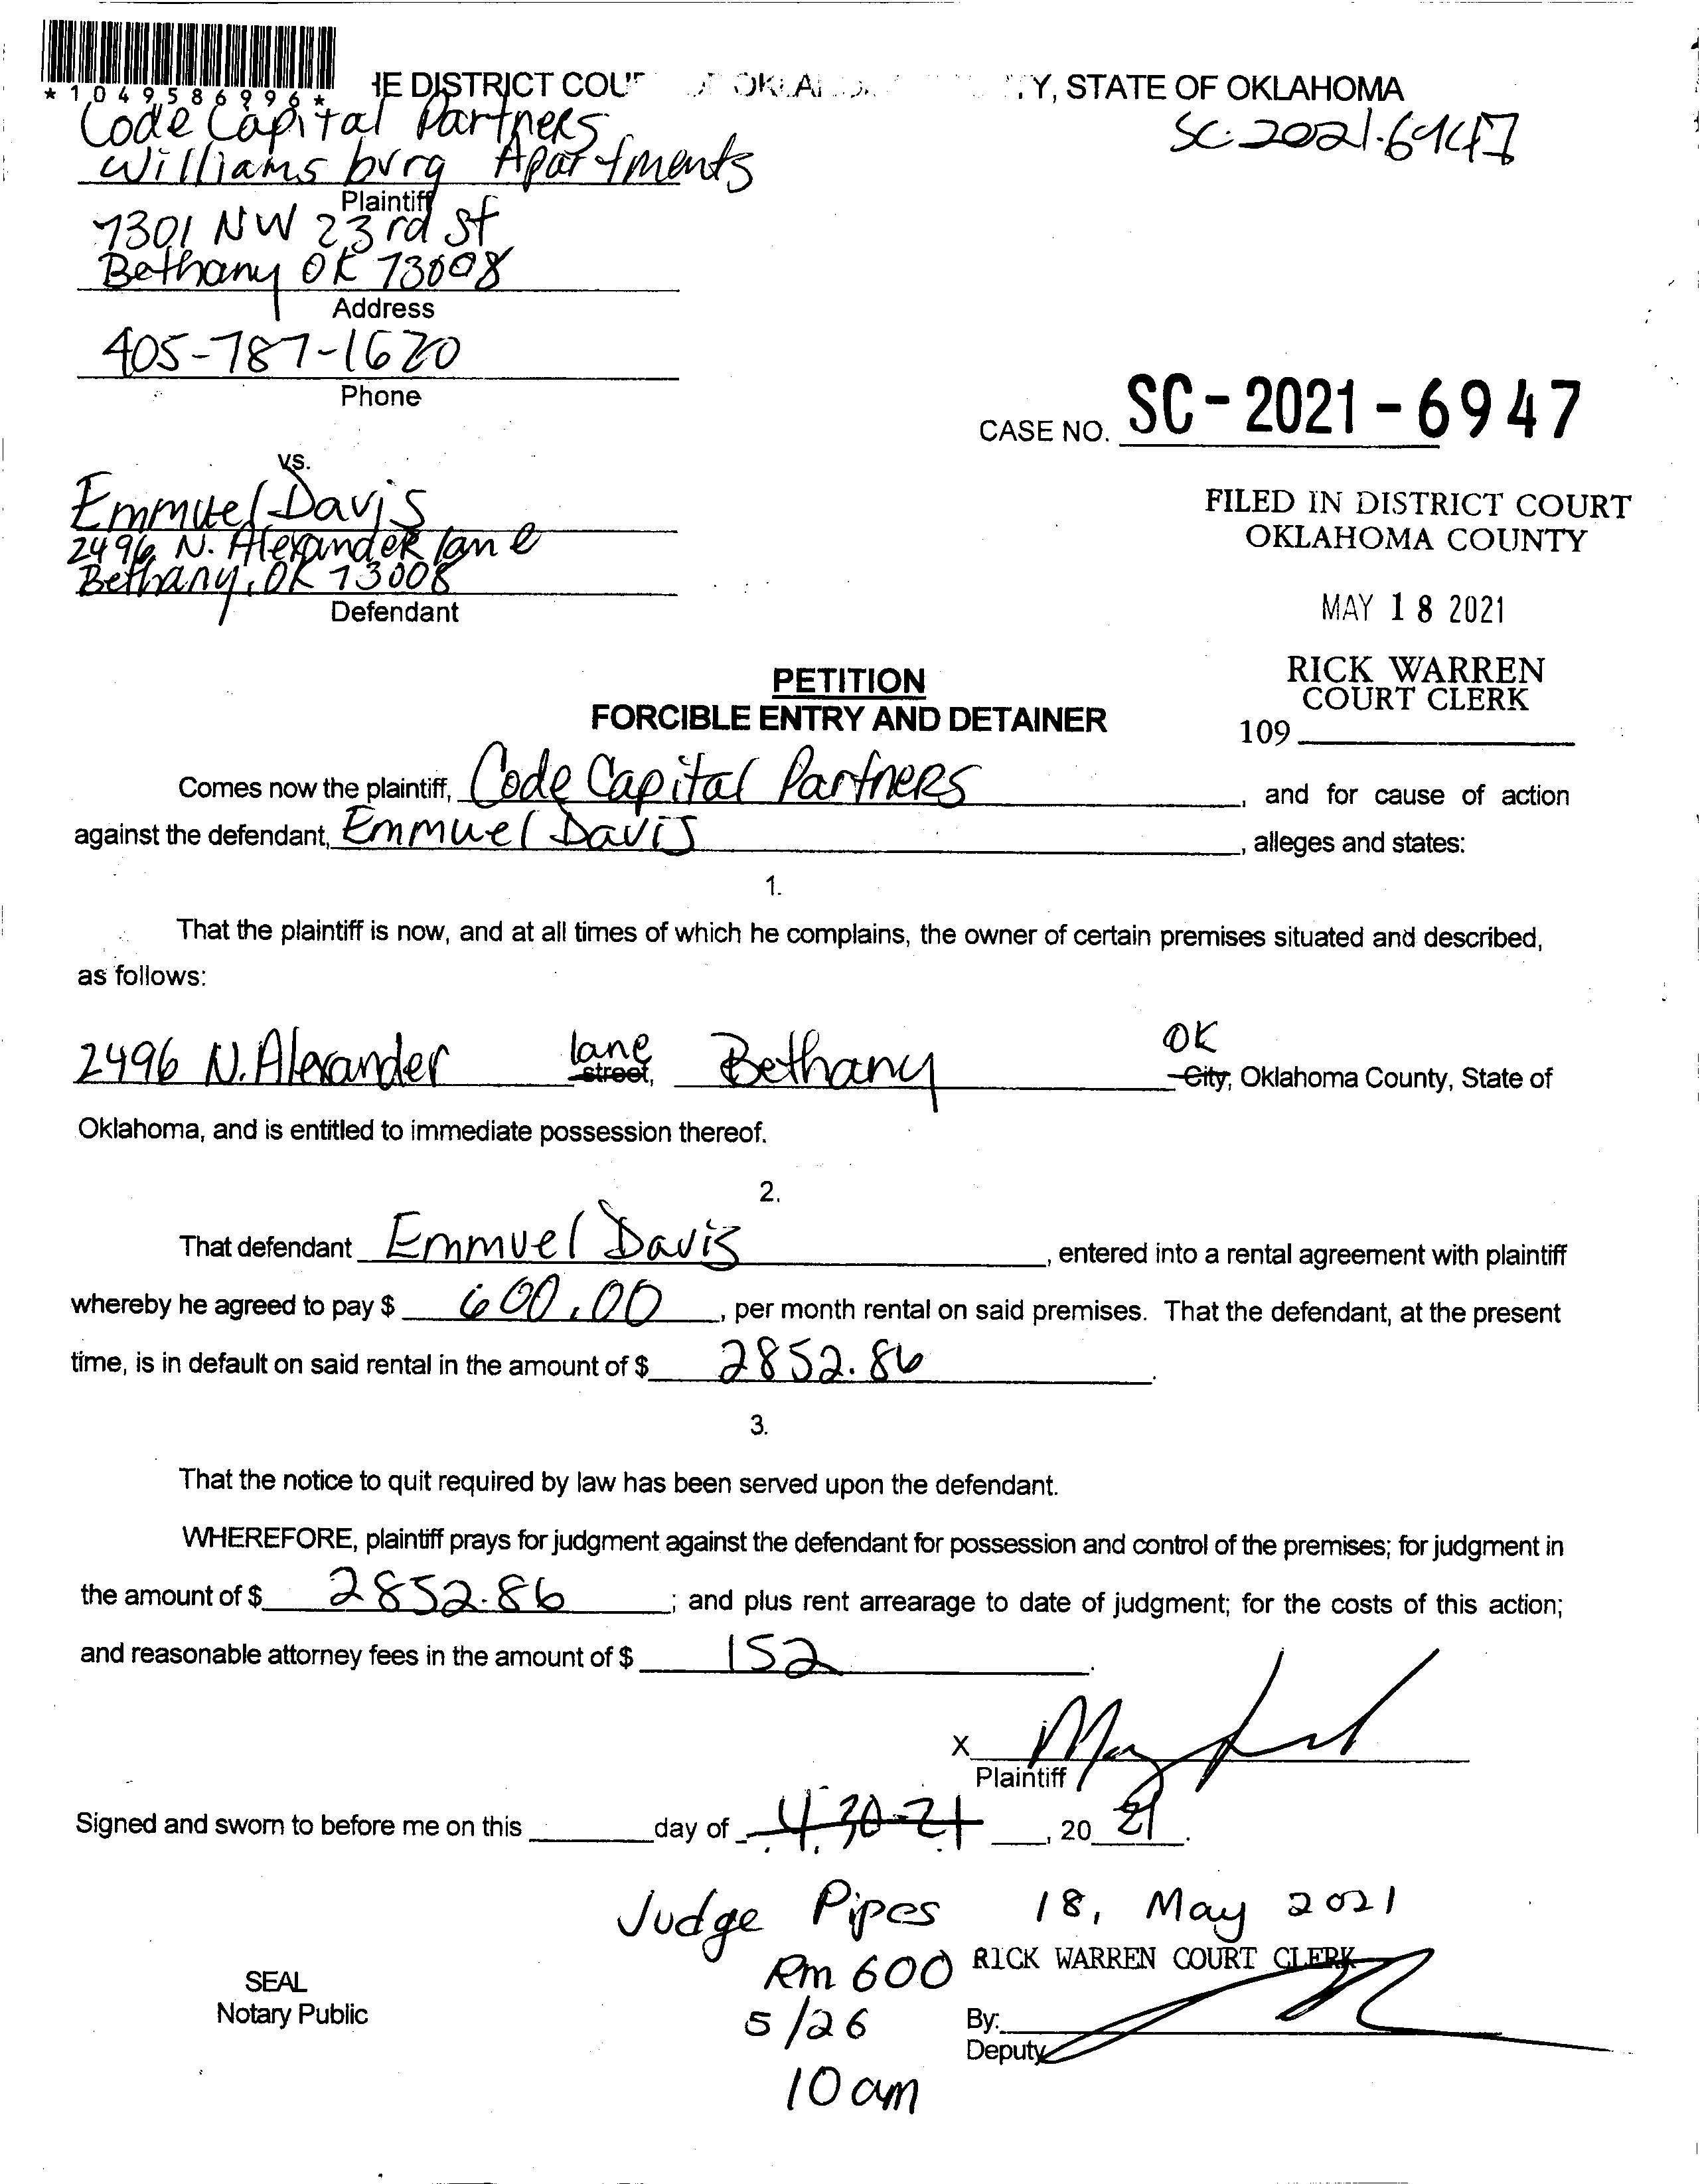 *1049586996*
IE DISTRICT COU OKLA Y, STATE OF OKLAHOMA
SC-2021-6947
Code Capital Partners
Williamsburg Apartments
Plaintiff
7301 NW 23rd St
Bethany OK 73008
Address
405-787-1620
Phone
CASE NO. SC-2021-6947
vs.
Emmuel Davis
2496 N. Alexander lane
Bethany, OK 73008
Defendant
FILED IN DISTRICT COURT
OKLAHOMA COUNTY
MAY 18 2021
RICK WARREN
COURT CLERK
109
PETITION
FORCIBLE ENTRY AND DETAINER
Comes now the plaintiff, Code Capital Partners, and for cause of action
against the defendant, Emmuel Davis, alleges and states:
1.
That the plaintiff is now, and at all times of which he complains, the owner of certain premises situated and described,
as follows:
2496 N. Alexander lane street, Bethany OK City, Oklahoma County, State of
Oklahoma, and is entitled to immediate possession thereof.
2.
That defendant Emmuel Davis, entered into a rental agreement with plaintiff
whereby he agreed to pay $ 600.00, per month rental on said premises. That the defendant, at the present
time, is in default on said rental in the amount of $ 2852.86.
3.
That the notice to quit required by law has been served upon the defendant.
WHEREFORE, plaintiff prays for judgment against the defendant for possession and control of the premises; for judgment in
the amount of $ 2852.86; and plus rent arrearage to date of judgment; for the costs of this action;
and reasonable attorney fees in the amount of $ 152.
X
Plaintiff
Signed and sworn to before me on this day of 4-30-21, 20 21.
Judge Pipes 18, May 2021
Rm 600 RICK WARREN COURT CLERK
SEAL
Notary Public
5/26
By:
Deputy
10 am